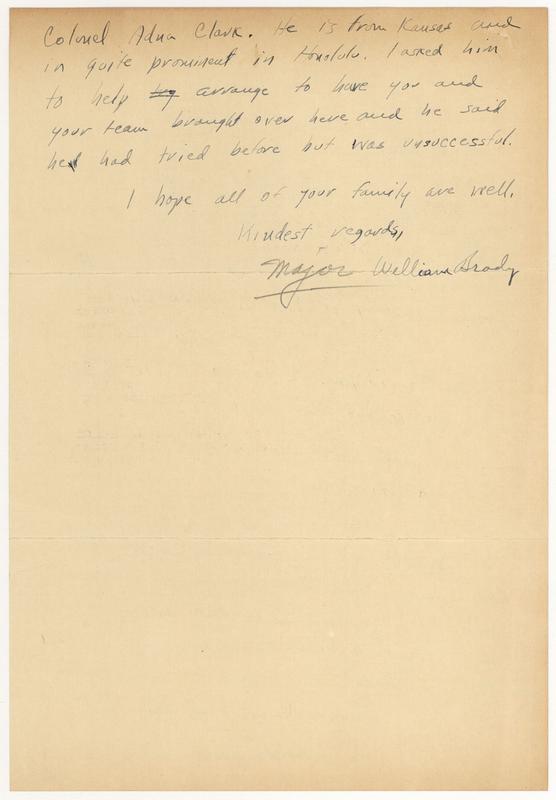 Colonel Adna Clark. He is from Kansas and
in quite prominent in Honolulu. I asked him
to help try arrange to have you and
your team brought over here and he said
he had tried before but was unsuccessful.
I hope all of your family are well.
Kindest regards,
Major William Brady